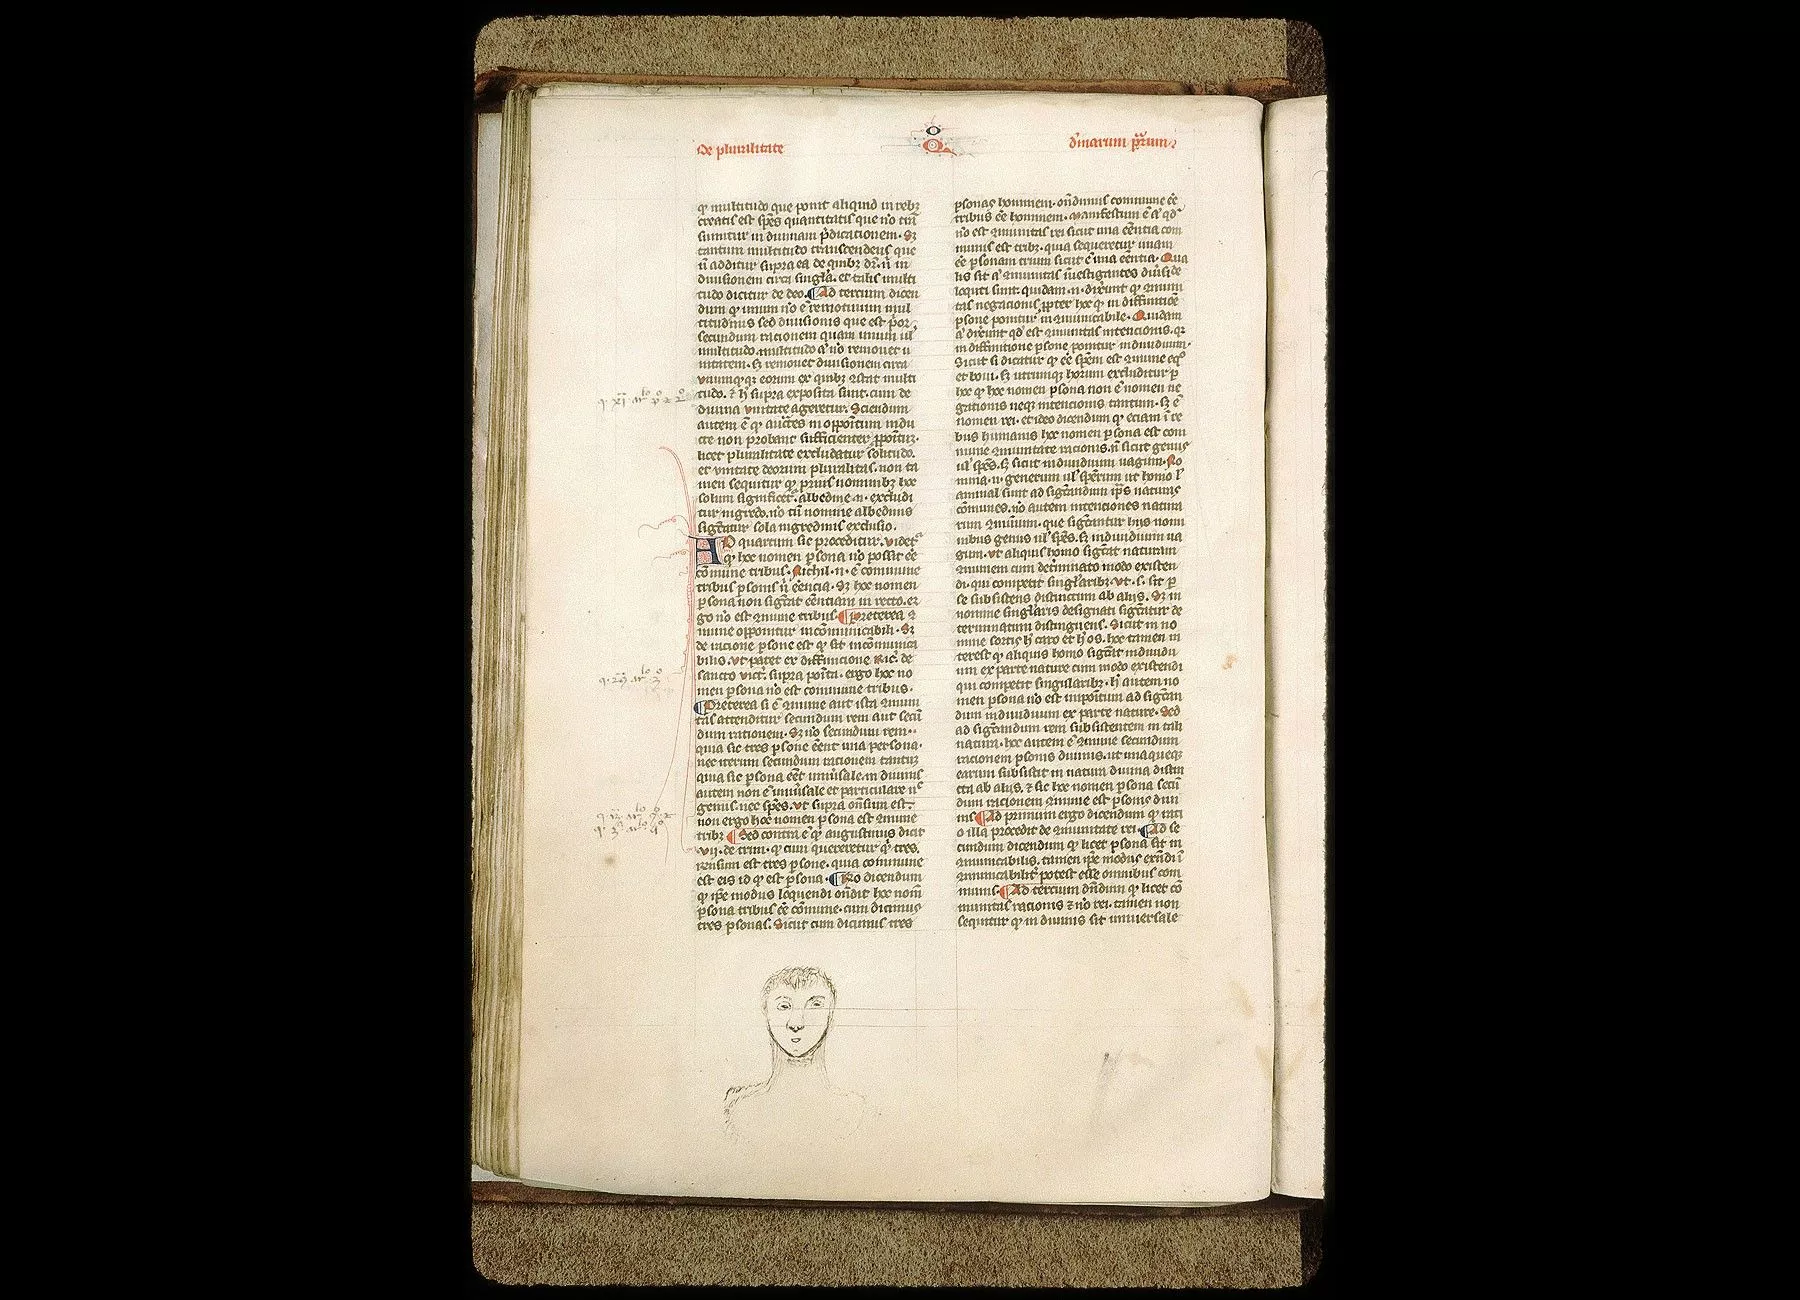 De pluralitate
d'inarum p̄r̄ium
q' multitudo que ponit aliquid in reb3
creatis est sp̄es quantitatis que nō trā
sumitur in diuinam p̄dicationem. S3
tantum multitudo transcendens que
n̄ additur supra ea de quib3 dr̄. n̄ in
diuisionem circa singl'a. et talis multi
tudo dicitur de deo. Ad tercium dicen
dum q' unum nō ē remotiuum mul
titudinis sed diuisionis que est p'or
secundum racionem quam unum ul'
multitudo. multitudo a' nō remouet u
nitatem. s3 remouet diuisionem circa
vnumq'q3 eorum ex quib3 9stat multi
tudo. ⁊ h' supra exposita sunt. cum de
diuina vnitate ageretur. Sciendum
autem ē q' auc̄tes in opp̄oitum indu
cte non probant sufficienter p̄poitū.
licet pluralitate excludatur solitudo.
et vnitate deorum pluralitas. non ta
men sequitur q' p̄riis nominib3 hoc
solum significet'. albedine .n. excludi
tur nigredo. nō tn̄ nomine albedinis
sig̅catur sola nigredinis exclusio.
AD quartum sic proceditur. videt'
q' hoc nomen p̱sona nō possit ēē
cōmune tribus. Nichil .n. ē commune
tribus p̱sonis n̄ eēncia. S3 hoc nomen
p̱sona non sig̅cat eēntiam in recto. er
go nō est 9mune tribus. Preterea 9
mune opponitur incōmunicabili. S3
de racione p̱sone est q' sit incōmunica
bilis. vt patet ex diffinicione Ric̄. de
sancto vict'. supra po͞ita. ergo hoc no
men p̱sona nō est commune tribus.
Preterea si ē 9mune aut ista 9muni
tas attenditur secundum rem aut secū
dum rationem. S3 nō secundum rem.
quia sic tres p̱sone ēent una persona.
nec iterum secundum racionem tantū
quia sic p̱sona eēt uniu'sale. in diuinis
autem non ē uniu'sale et particulare n̄
genus. nec sp̄es. vt supra on̄sum est.
non ergo hoc nomen p̱sona est 9mune
trib3 Sed contra ē q' augustinus dicit
vii. de trini. q' cum quereretur q' tres.
responsum est tres p̱sone. quia commune
est eis id q' est p̱sona. Rō dicendum
q' ip̄e modus loquendi on̄dit hoc nom̄
p̱sona tribus ēē cōmune. cum dicimus
tres p̱sonas. Sicut cum dicimus tres
p̱sonas hominem. on̄dimus commune ēē
tribus ēē hominem. manifestum ē a' qd'
nō est 9munitas rei sicut una eēntia com
munis est trib3. quia sequeretur unam
ēē p̱sonam trium sicut ē una eēntia. Qua
lis sit a' 9munitas inuestigantes diuisi de
locuti sunt. quidam .n. dixerunt q' 9muni
tas negacionis p̱pter hoc q' in diffinitiōe
p̱sone ponitur in9municabile. Quidam
a' dixerunt qd' est 9munitas intencionis. q̄
in diffinitione p̱sone ponitur indiuiduum.
Sicut si dicatur q' ēē sp̄em est 9mune eq°
et boui. S3 utrumq3 horum excluditur p̱
hoc q' hoc nomen p̱sona non ē nomen ne
gationis neq3 intencionis tantum. s3 ē
nomen rei. et ideo dicendum q' eciam ī re
bus humanis hoc nomen p̱sona est com
mune 9munitate racionis. n̄ sicut genus
ul' sp̄es. s3 sicut indiuiduum uagum. No
mina .n. generum ul' sp̄erum ut homo ul'
animal sunt ad sig̅candum ip̄as naturas
cōmunes. nō autem intenciones natura
rum 9muium. que sig̅cantur hiis nomi
nibus genus ul' sp̄es. s3 indiuiduum ua
gum. vt aliquis homo sig̅cat naturam
9munem cum det'minato modo existen
di. qui competit singl'arib3. vt .s. sit p̱
se subsistens distinctum ab aliis. S3 in
nomine singl'aris designati sig̅catur de
terminatum distinguens. Sicut in no
mine sortis h' caro et h' os. hoc tamen in
terest q' aliquis homo sig̅cat indiuidu
um ex parte nature cum modo existendi
qui competit singularib3. h' autem no
men p̱sona nō est impo͞itum ad sig̅can
dum indiuiduum ex parte nature. Sed
ad sig̅candum rem subsistentem in tali
natura. hoc autem ē 9mune secundum
racionem p̱sonis diuinis. ut unaqueq3
earum subsistat in natura diuina distin
cta ab aliis. ⁊ sic hoc nomen p̱sona secū
dum racionem 9mune est p̱sonis diui
nis Ad primum ergo dicendum q' raci
o illa procedit de 9munitate rei. Ad se
cundum dicendum q' licet p̱sona sit in
9municabilis. tamen ip̄e modus ex̄ndi ī
9municabilit' potest esse omnibus com
munis. Ad tercium dn̄dum q' licet cō
munitas racionis ⁊ nō rei. tamen non
sequitur q' in diuinis sit uniuersale